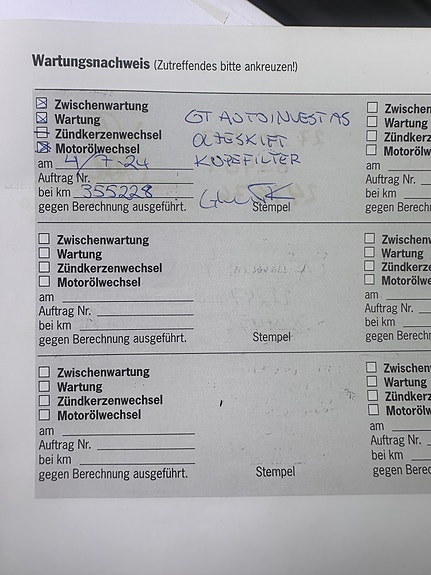 Wartungsnachweis (Zutreffendes bitte ankreuzen!)
Zwischenwartung
Wartung
Zündkerzenwechsel
Motorölwechsel
am 4/7-24
Auftrag Nr.
bei km 355228
gegen Berechnung ausgeführt.
GT AUTOINVEST AS
OLJESKIFT
KUPEFILTER
Stempel
Zwischen
Wartung
Zündkerz
Motoröl
am
Auftrag Nr.
bei km
gegen Berec
Zwischenwartung
Wartung
Zündkerzenwechsel
Motorölwechsel
am
Auftrag Nr.
bei km
gegen Berechnung ausgeführt.
Stempel
Zwischen
Wartung
Zündkerz
Motoröl
am
Auftrag Nr.
bei km
gegen Berec
Zwischenwartung
Wartung
Zündkerzenwechsel
Motorölwechsel
am
Auftrag Nr.
bei km
gegen Berechnung ausgeführt.
Stempel
Zwischen
Wartung
Zündkerz
Motoröl
am
Auftrag Nr.
bei km
gegen Berec